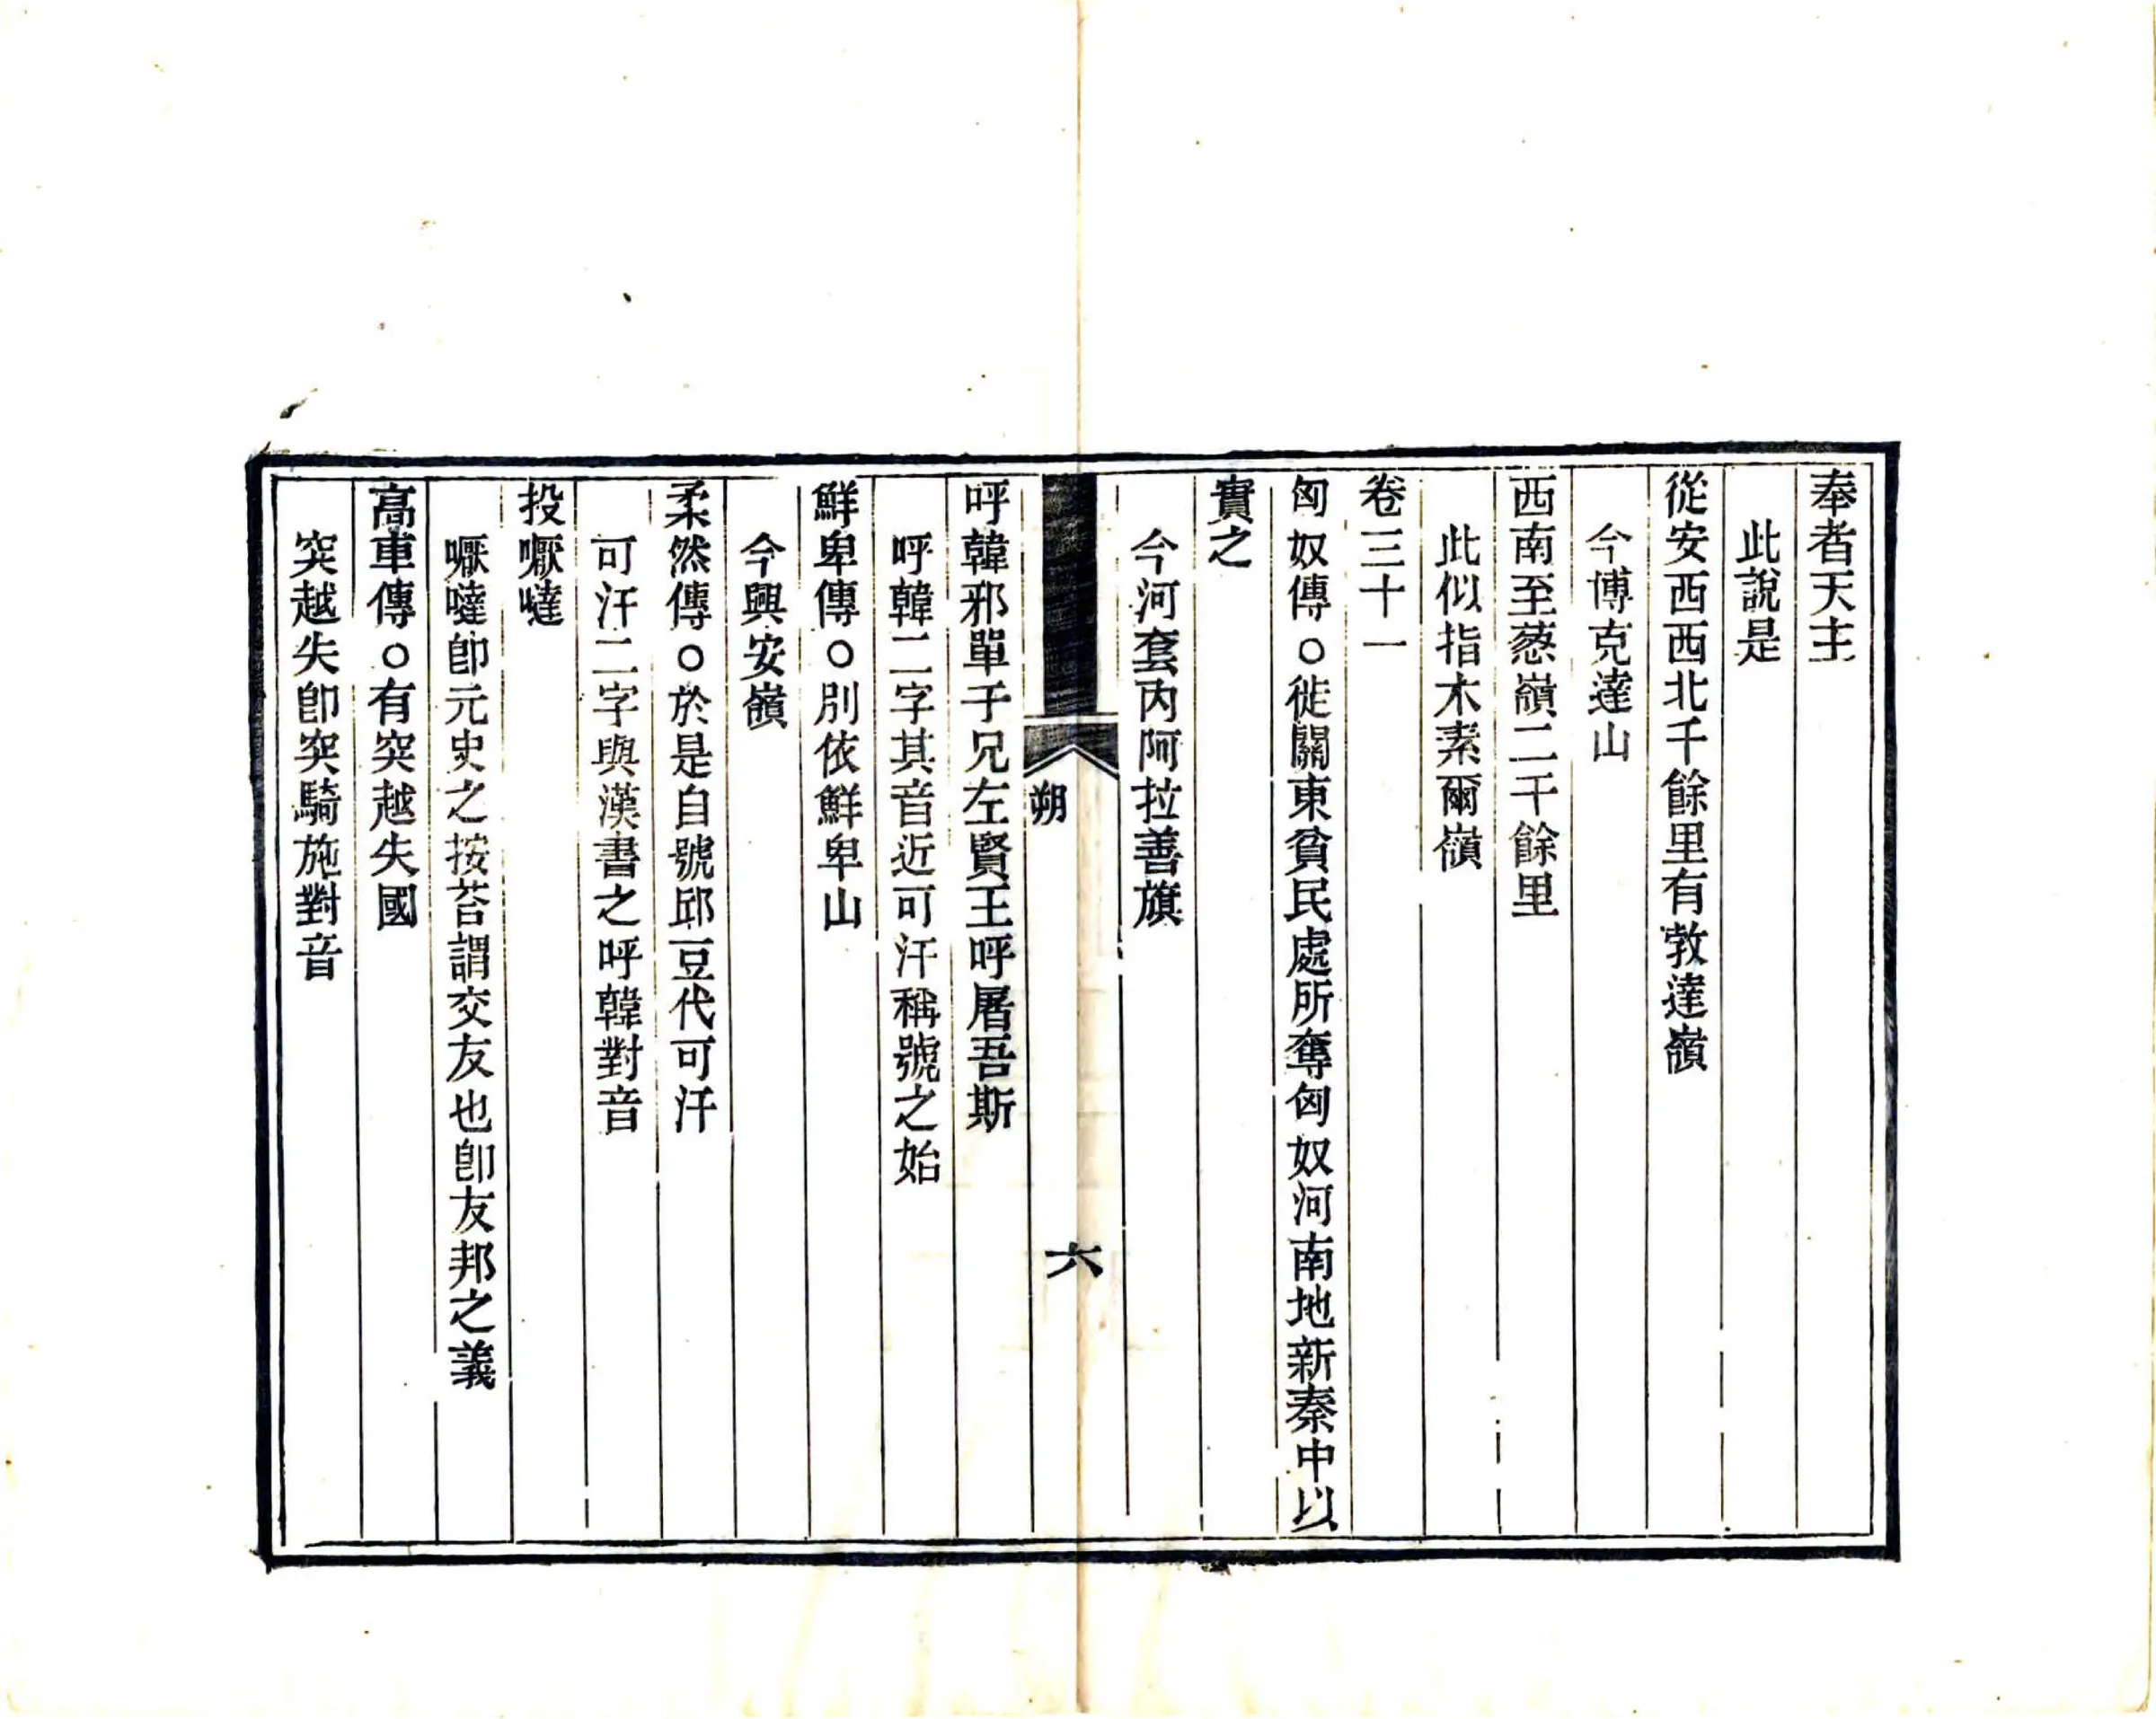 奉者天主
此說是
從安西西北千餘里有敦達嶺
今博克達山
西南至葱嶺二千餘里
此似指木素爾嶺
卷三十一
匈奴傳○徙關東貧民處所奪匈奴河南地新秦中以
實之
今河套內阿拉善旗
朔
六
呼韓邪單于兄左賢王呼屠吾斯
呼韓二字其音近可汗稱號之始
鮮卑傳○別依鮮卑山
今興安嶺
柔然傳○於是自號邱豆代可汗
可汗二字與漢書之呼韓對音
投嚈噠
嚈噠卽元史之按荅謂交友也卽友邦之義
高車傳○有突越失國
突越失卽突騎施對音